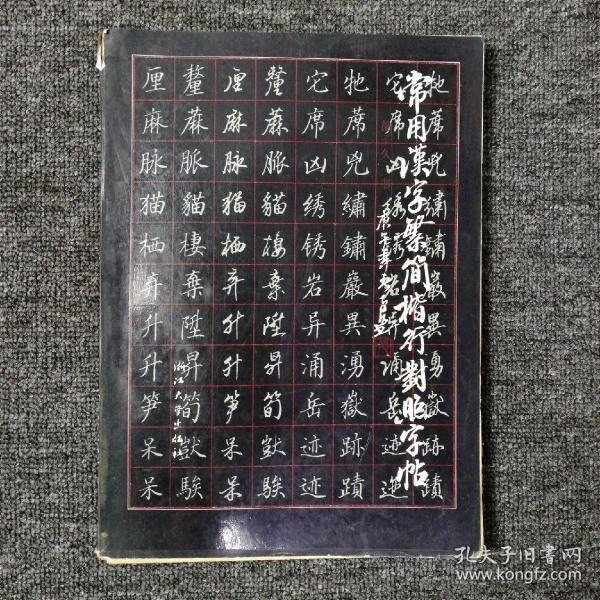 常用漢字繁簡楷行對照字帖
浙江大学出版社
厘 釐 厘 釐 它 牠 它 牠
麻 蔴 麻 蔴 席 蓆 席 蓆
脉 脈 脉 脈 凶 兇 凶 兇
猫 貓 猫 貓 绣 繡 绣 繡
栖 棲 栖 棲 锈 鏽 锈 鏽
弃 棄 弃 棄 岩 巖 岩 巖
升 陞 升 陞 异 異 异 異
升 昇 升 昇 涌 湧 涌 湧
笋 筍 笋 筍 岳 嶽 岳 嶽
呆 獃 呆 獃 迹 跡 迹 跡
呆 騃 呆 騃 迹 蹟 迹 蹟
孔夫子旧书网
www.kongfz.com